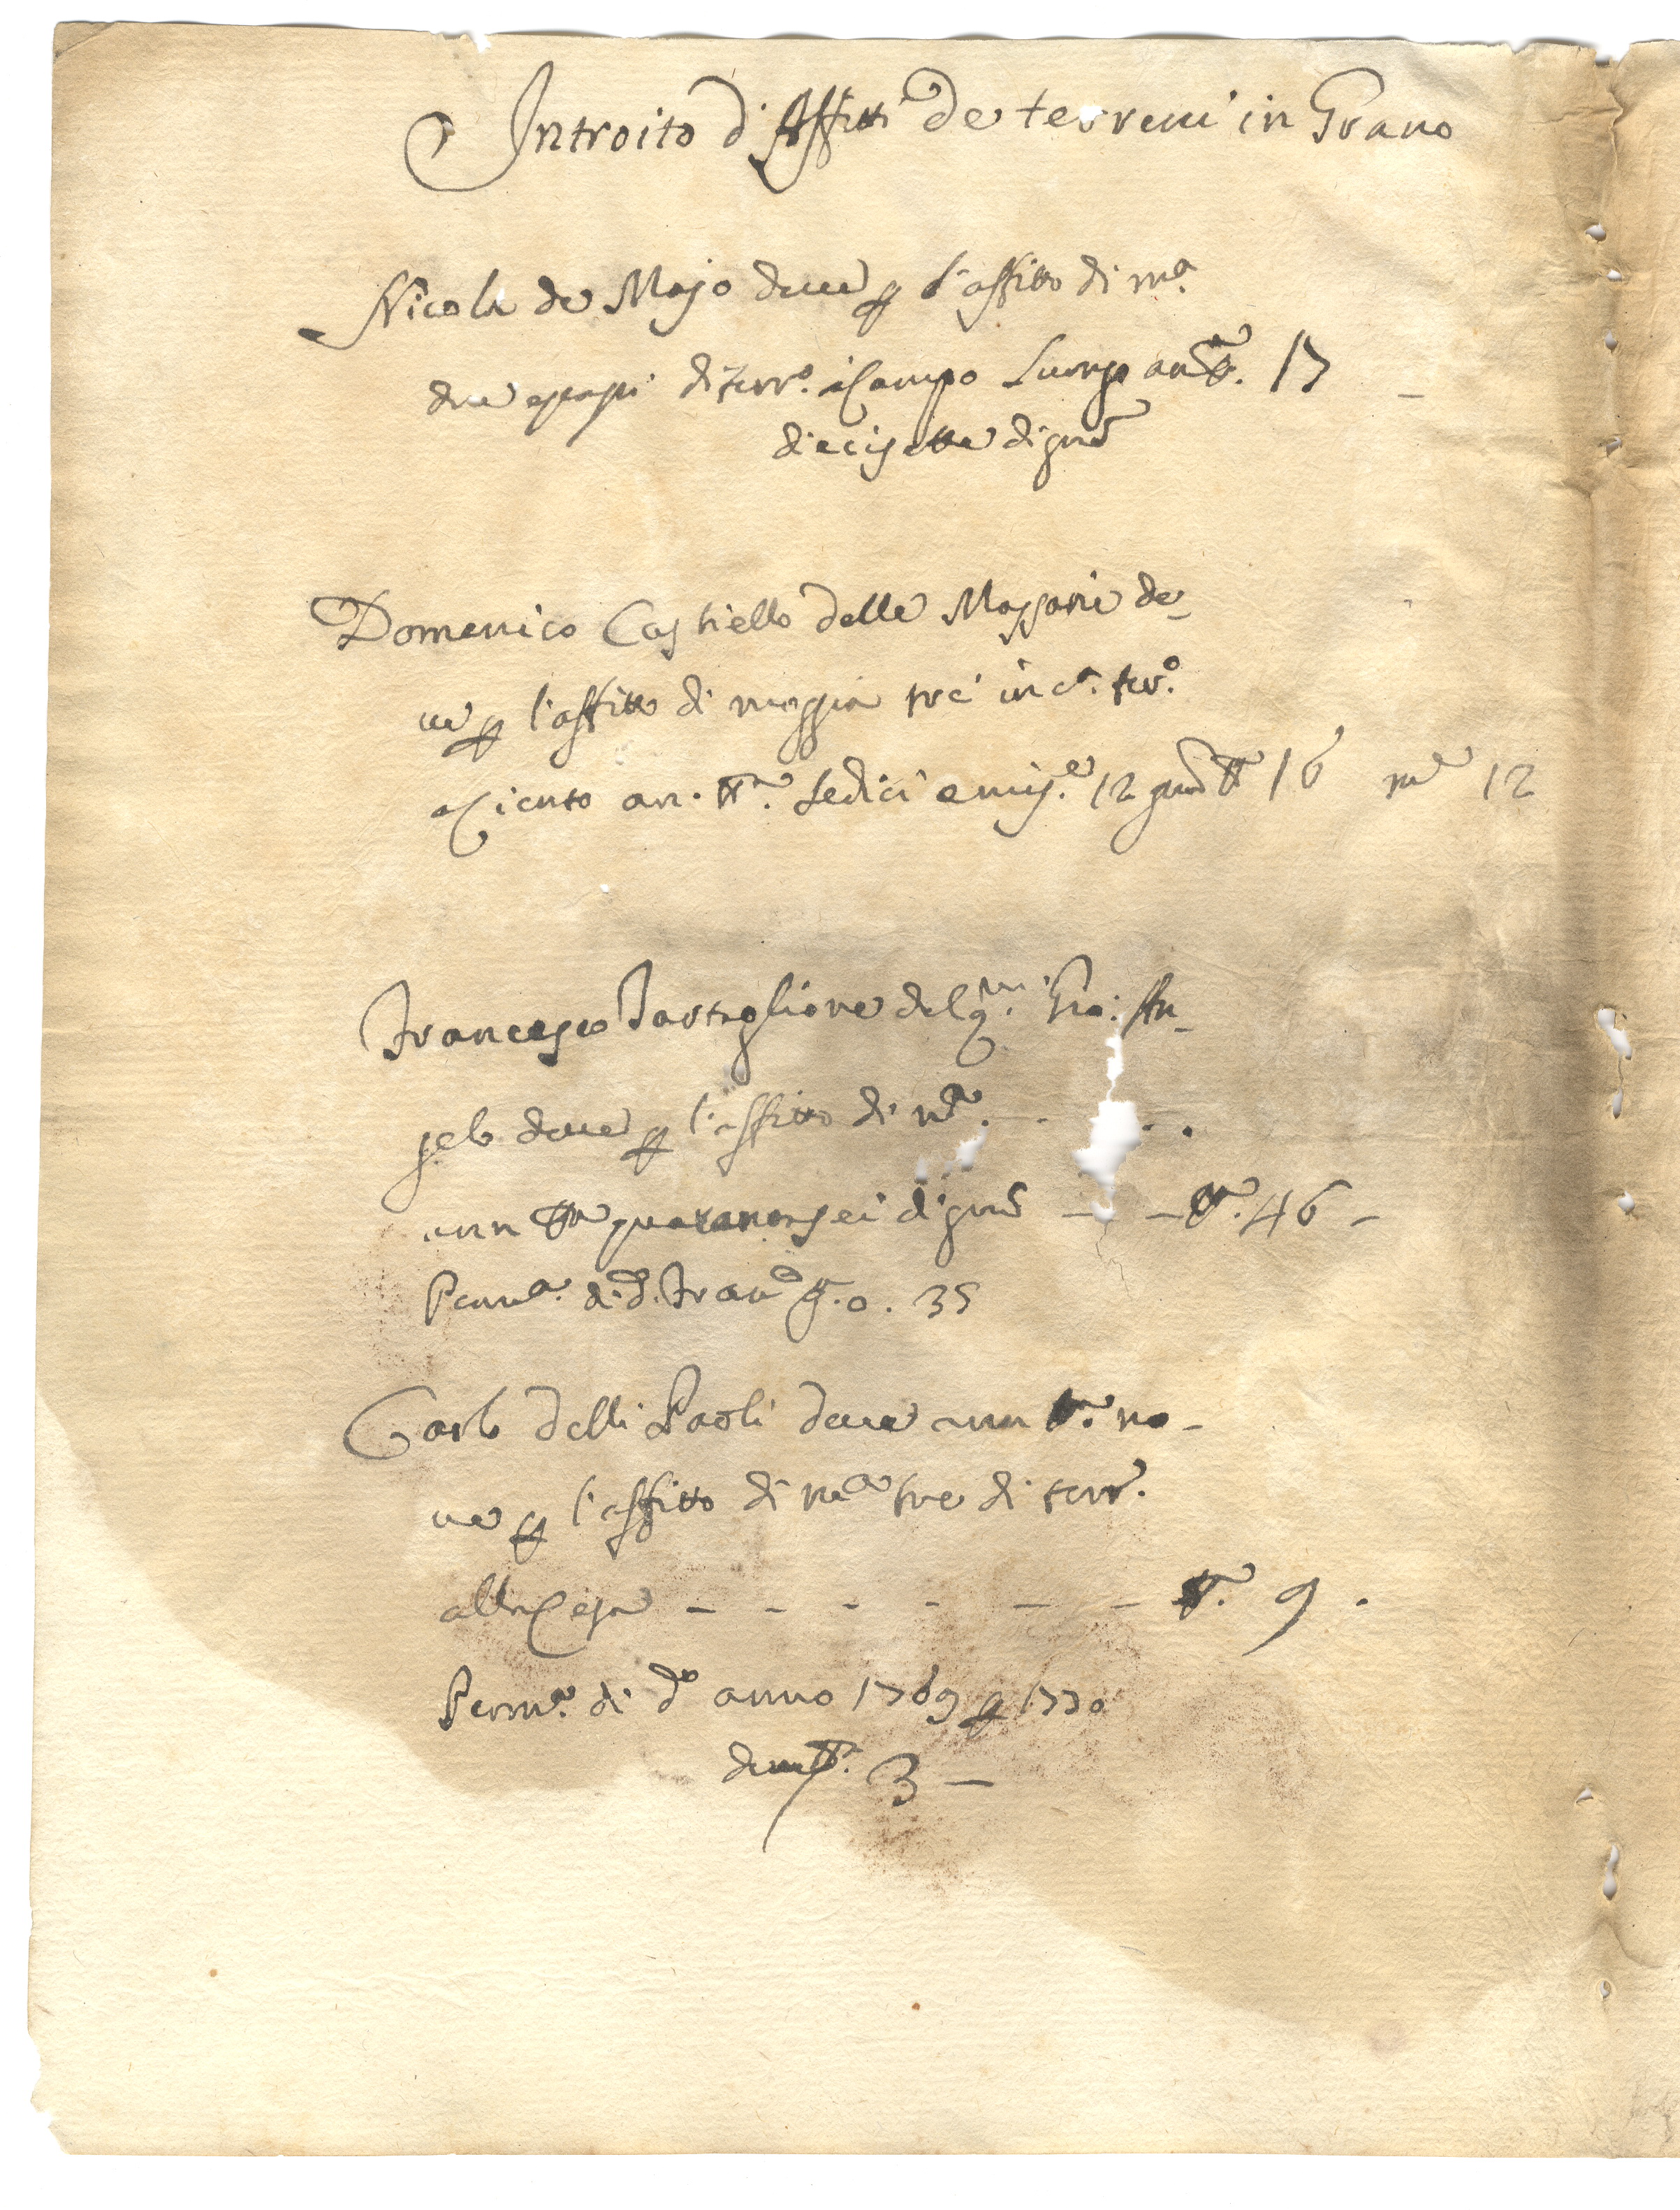 Introito d'Affitti de terreni in Grano
Nicola de Majo deve p l'affitto di m.a
due e passi di terr.o Campo Luongo an. tt.a 17
diecisette di gra.
Domenico Castiello delle Massarie de-
ve p l'affitto di moggia tre in c.a terr.o
an. tt.a sedici e mis.e 12 gra. tt.a 16 m.e 12
Francesco Tartaglione del q.m Gio: An-
gelo deve p l'affitto di m.a
ann. tt.a quarantasei di gra. - - tt.a 46 -
Perm.a di d. Fran.co p. o. 35
Carlo delli Paoli deve ann. tt.a no-
ve p l'affitto di m.a tre di terr.
alla Cesa - - - - - - tt.a 9.
Perm.a di d.o anno 1769 p 1770
deve tt.a 3 -